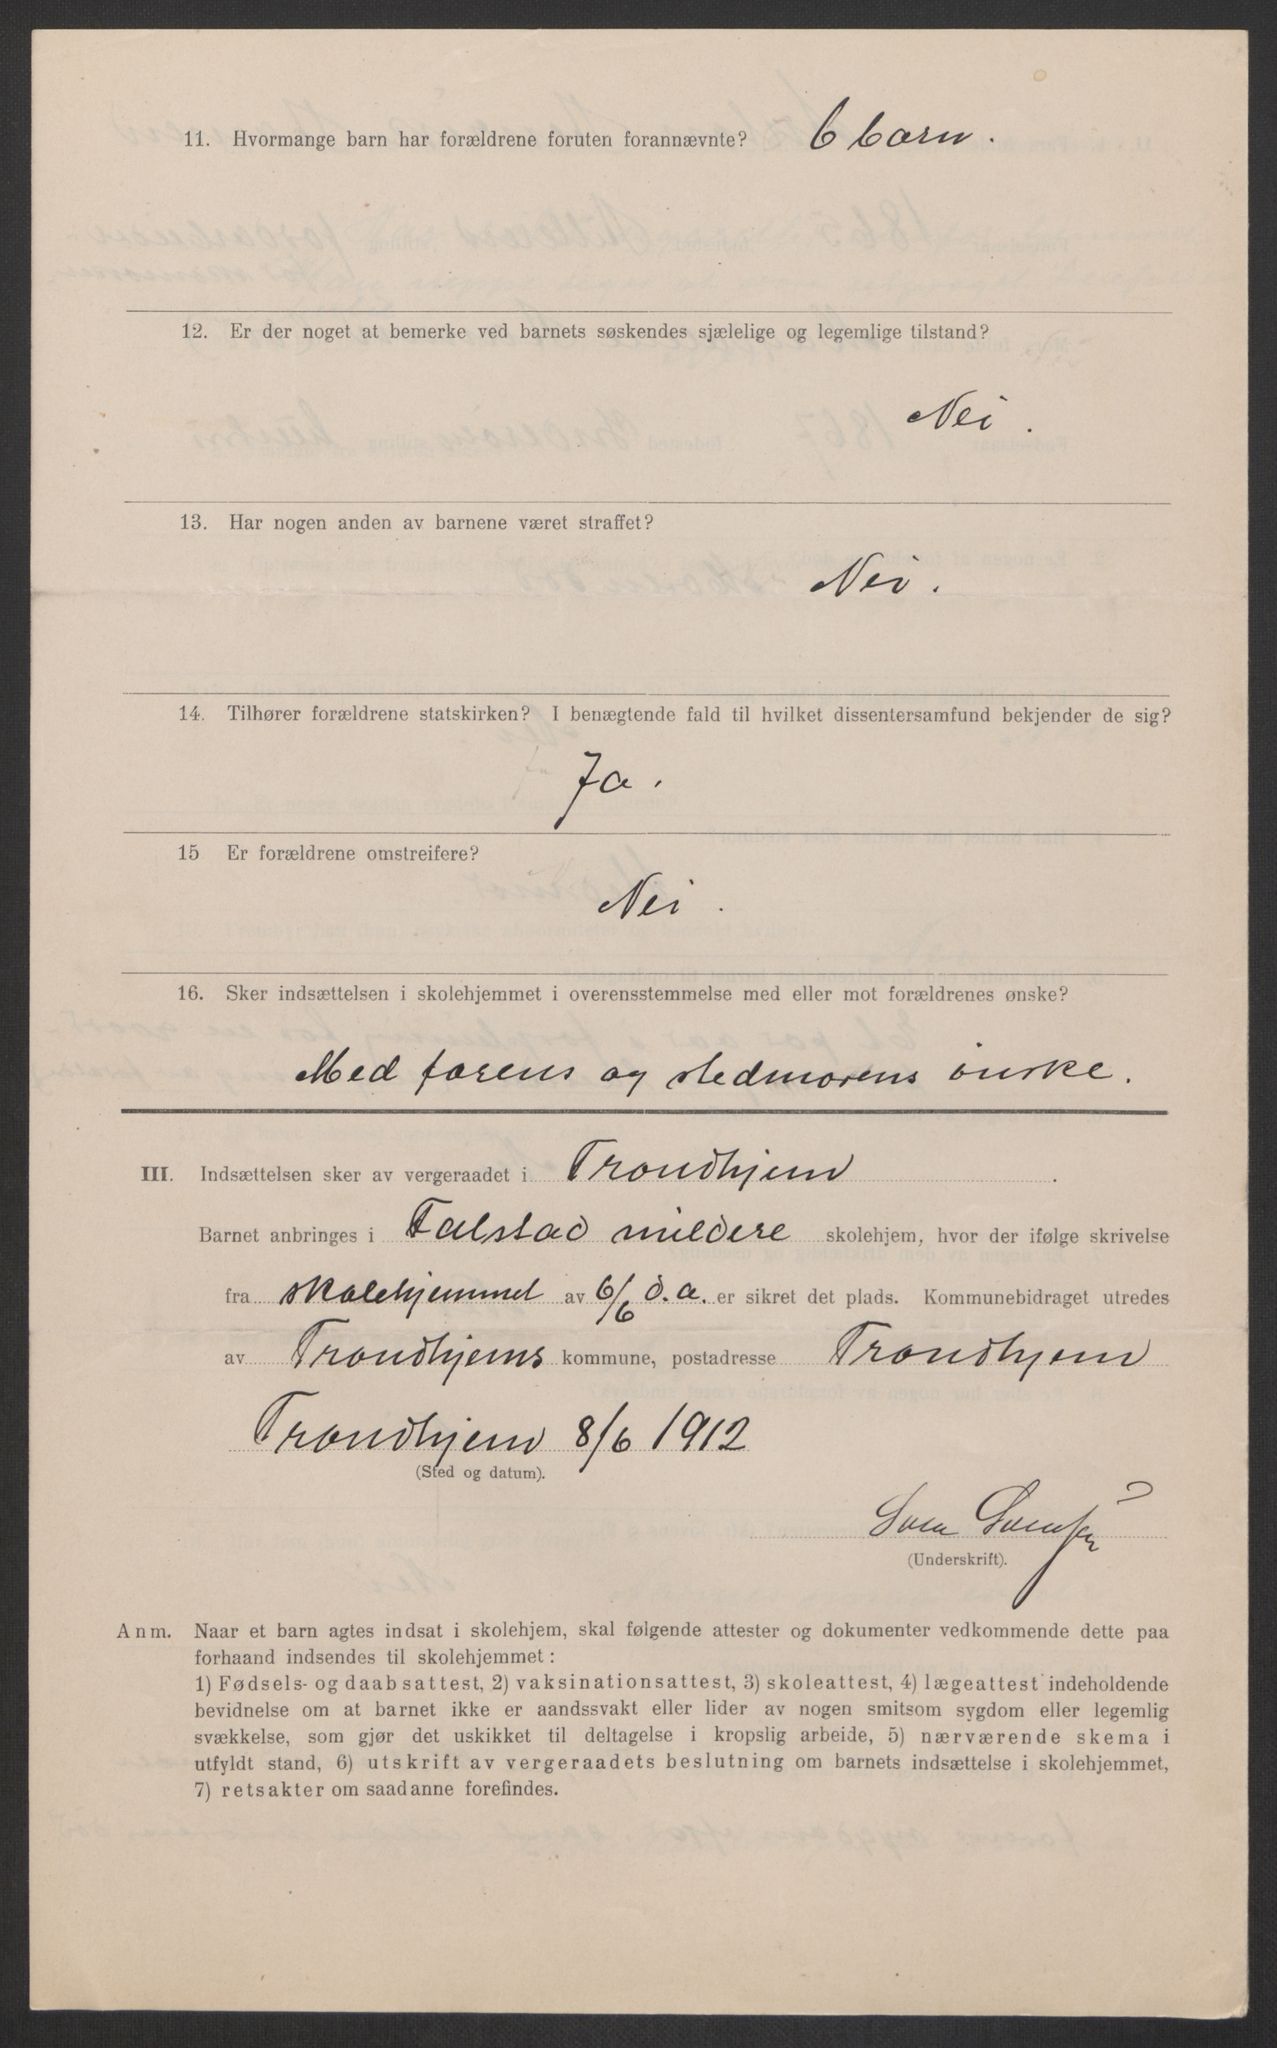 11. Hvormange barn har forældrene foruten forannævnte? 6 barn.
12. Er der noget at bemerke ved barnets søskendes sjælelige og legemlige tilstand?
Nei.
13. Har nogen anden av barnene været straffet?
Nei.
14. Tilhører forældrene statskirken? I benægtende fald til hvilket dissentersamfund bekjender de sig?
Ja.
15 Er forældrene omstreifere?
Nei.
16. Sker indsættelsen i skolehjemmet i overensstemmelse med eller mot forældrenes ønske?
Med farens og stedmorens ønske.
III. Indsættelsen sker av vergeraadet i Trondhjem.
Barnet anbringes i Falstad mildere skolehjem, hvor der ifølge skrivelse
fra skolehjemmet av 6/6 d. a. er sikret det plads. Kommunebidraget utredes
av Trondhjems kommune, postadresse Trondhjem
Trondhjem 8/6 1912
(Sted og datum).
Sven Svensen
(Underskrift).
Anm. Naar et barn agtes indsat i skolehjem, skal følgende attester og dokumenter vedkommende dette paa
forhaand indsendes til skolehjemmet:
1) Fødsels- og daabsattest, 2) vaksinationsattest, 3) skoleattest, 4) lægeattest indeholdende
bevidnelse om at barnet ikke er aandssvakt eller lider av nogen smitsom sygdom eller legemlig
svækkelse, som gjør det uskikket til deltagelse i kropslig arbeide, 5) nærværende skema i
utfyldt stand, 6) utskrift av vergeraadets beslutning om barnets indsættelse i skolehjemmet,
7) retsakter om saadanne forefindes.